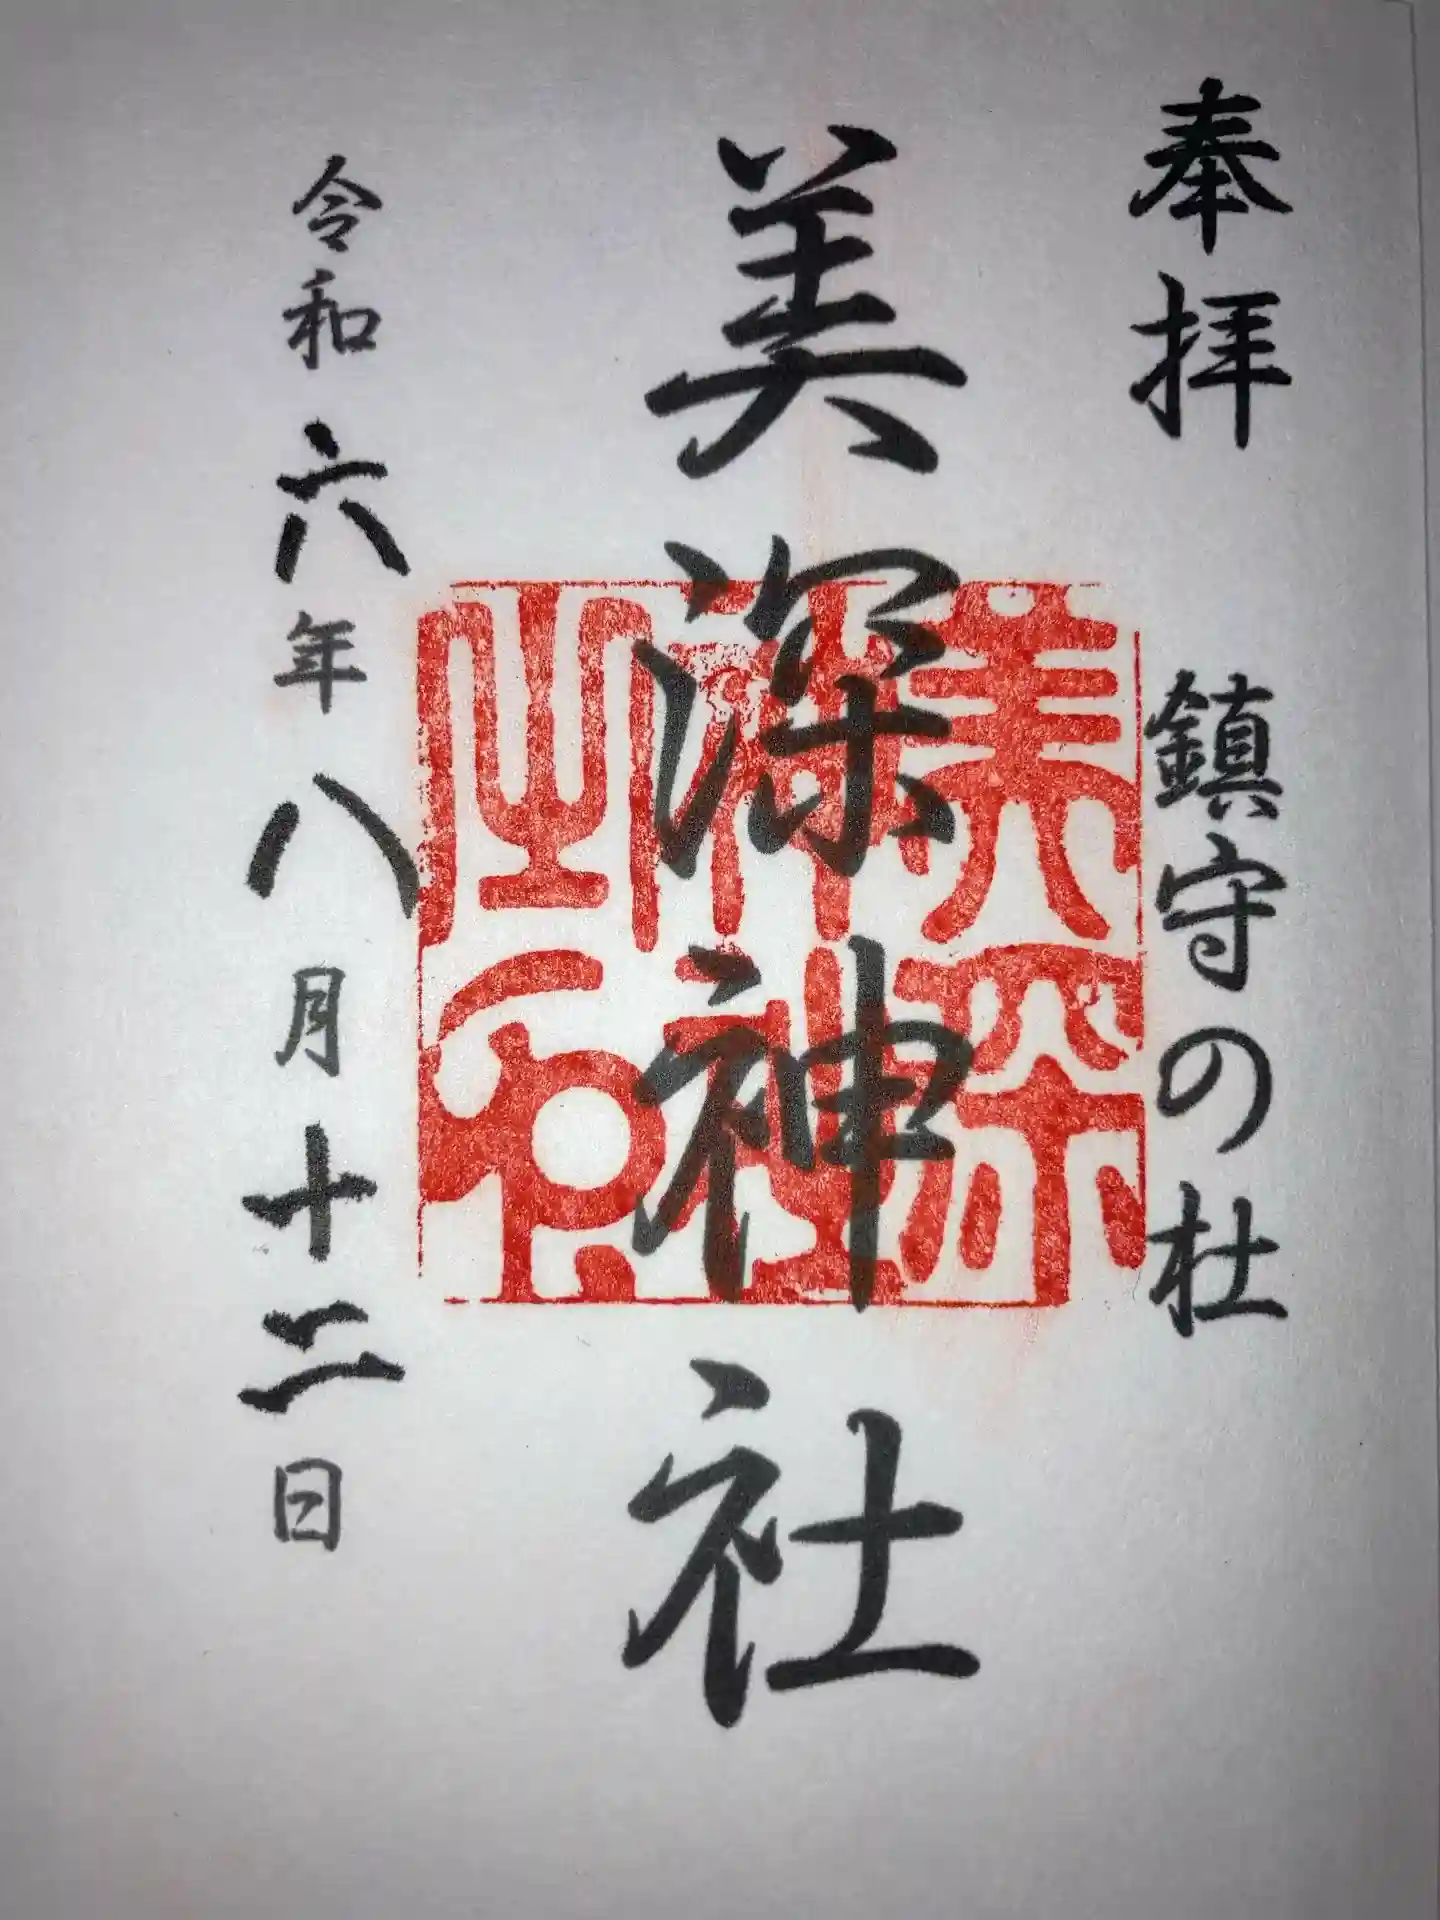 奉拝　鎮守の杜
美深神社
美深
神社
之印
令和六年八月十二日